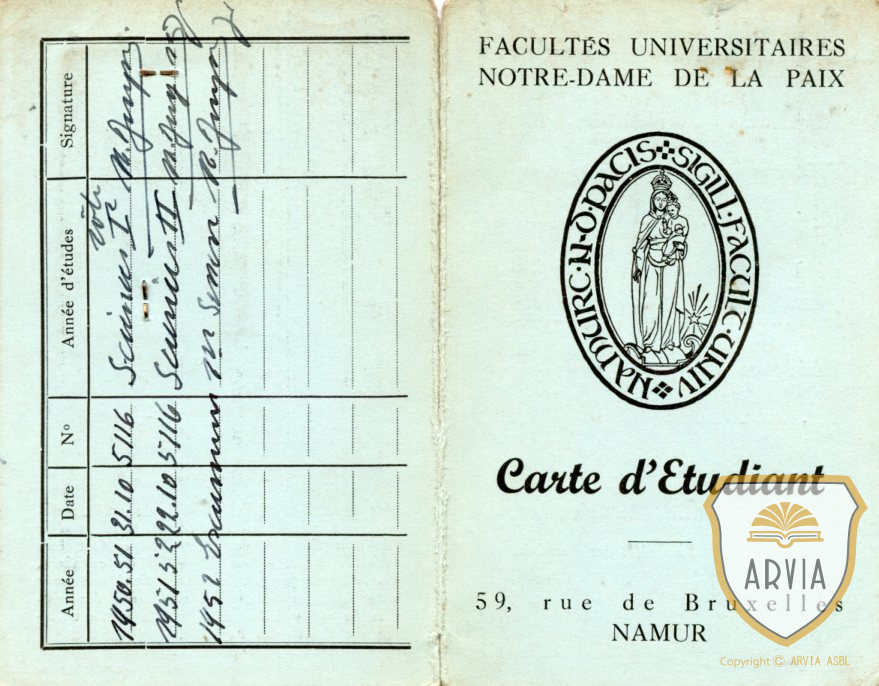 Année Date N° Année d'études Signature
1950.51 31.10 5116 Sciences I
1951 52 22.10 5116 Sciences II
1952
FACULTÉS UNIVERSITAIRES
NOTRE-DAME DE LA PAIX
SIGILL · FACULT · UNIV · NAMURC · N · D · PACIS
Carte d'Etudiant
59, rue de Bruxelles
NAMUR
ARVIA
Copyright © ARVIA ASBL